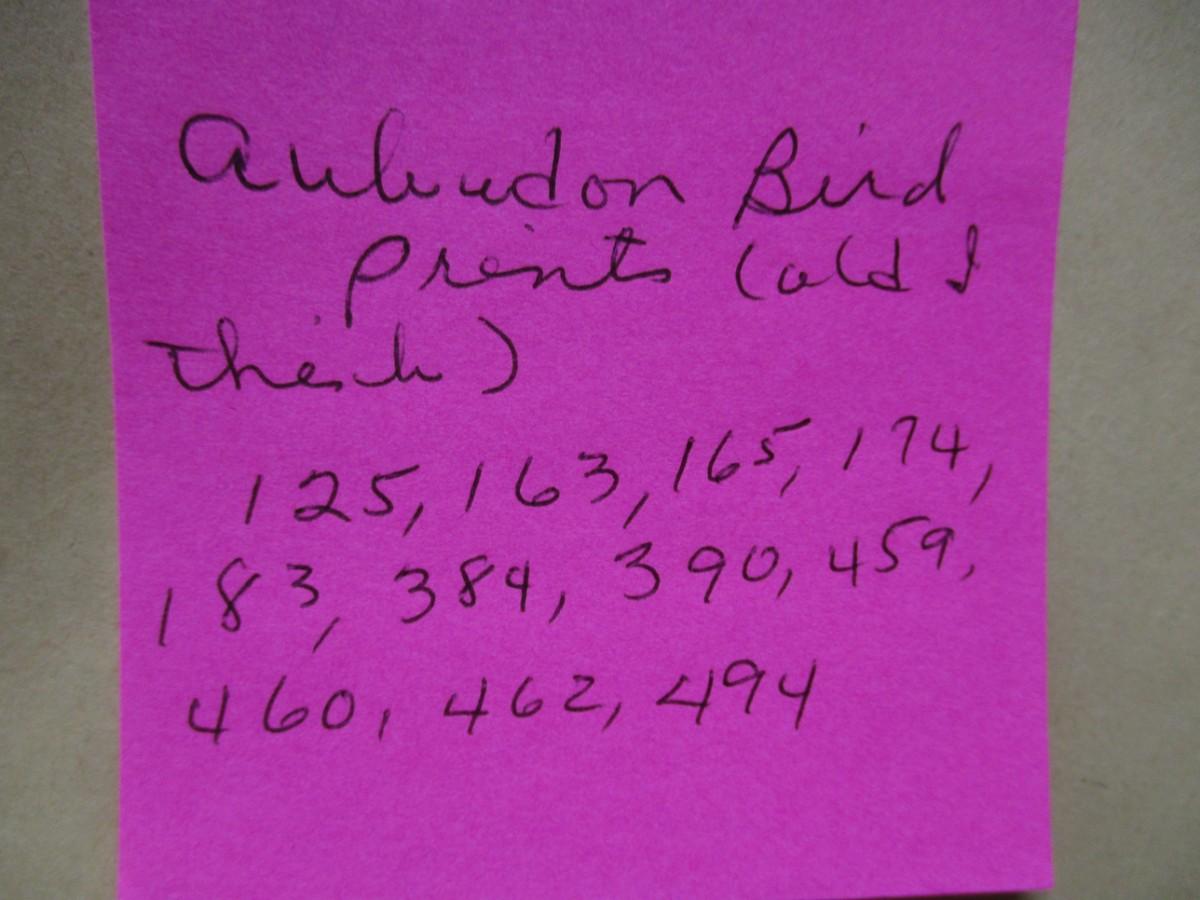 Aubudon Bird
Prints (old I
think)
125, 163, 165, 174,
183, 384, 390, 459,
460, 462, 494